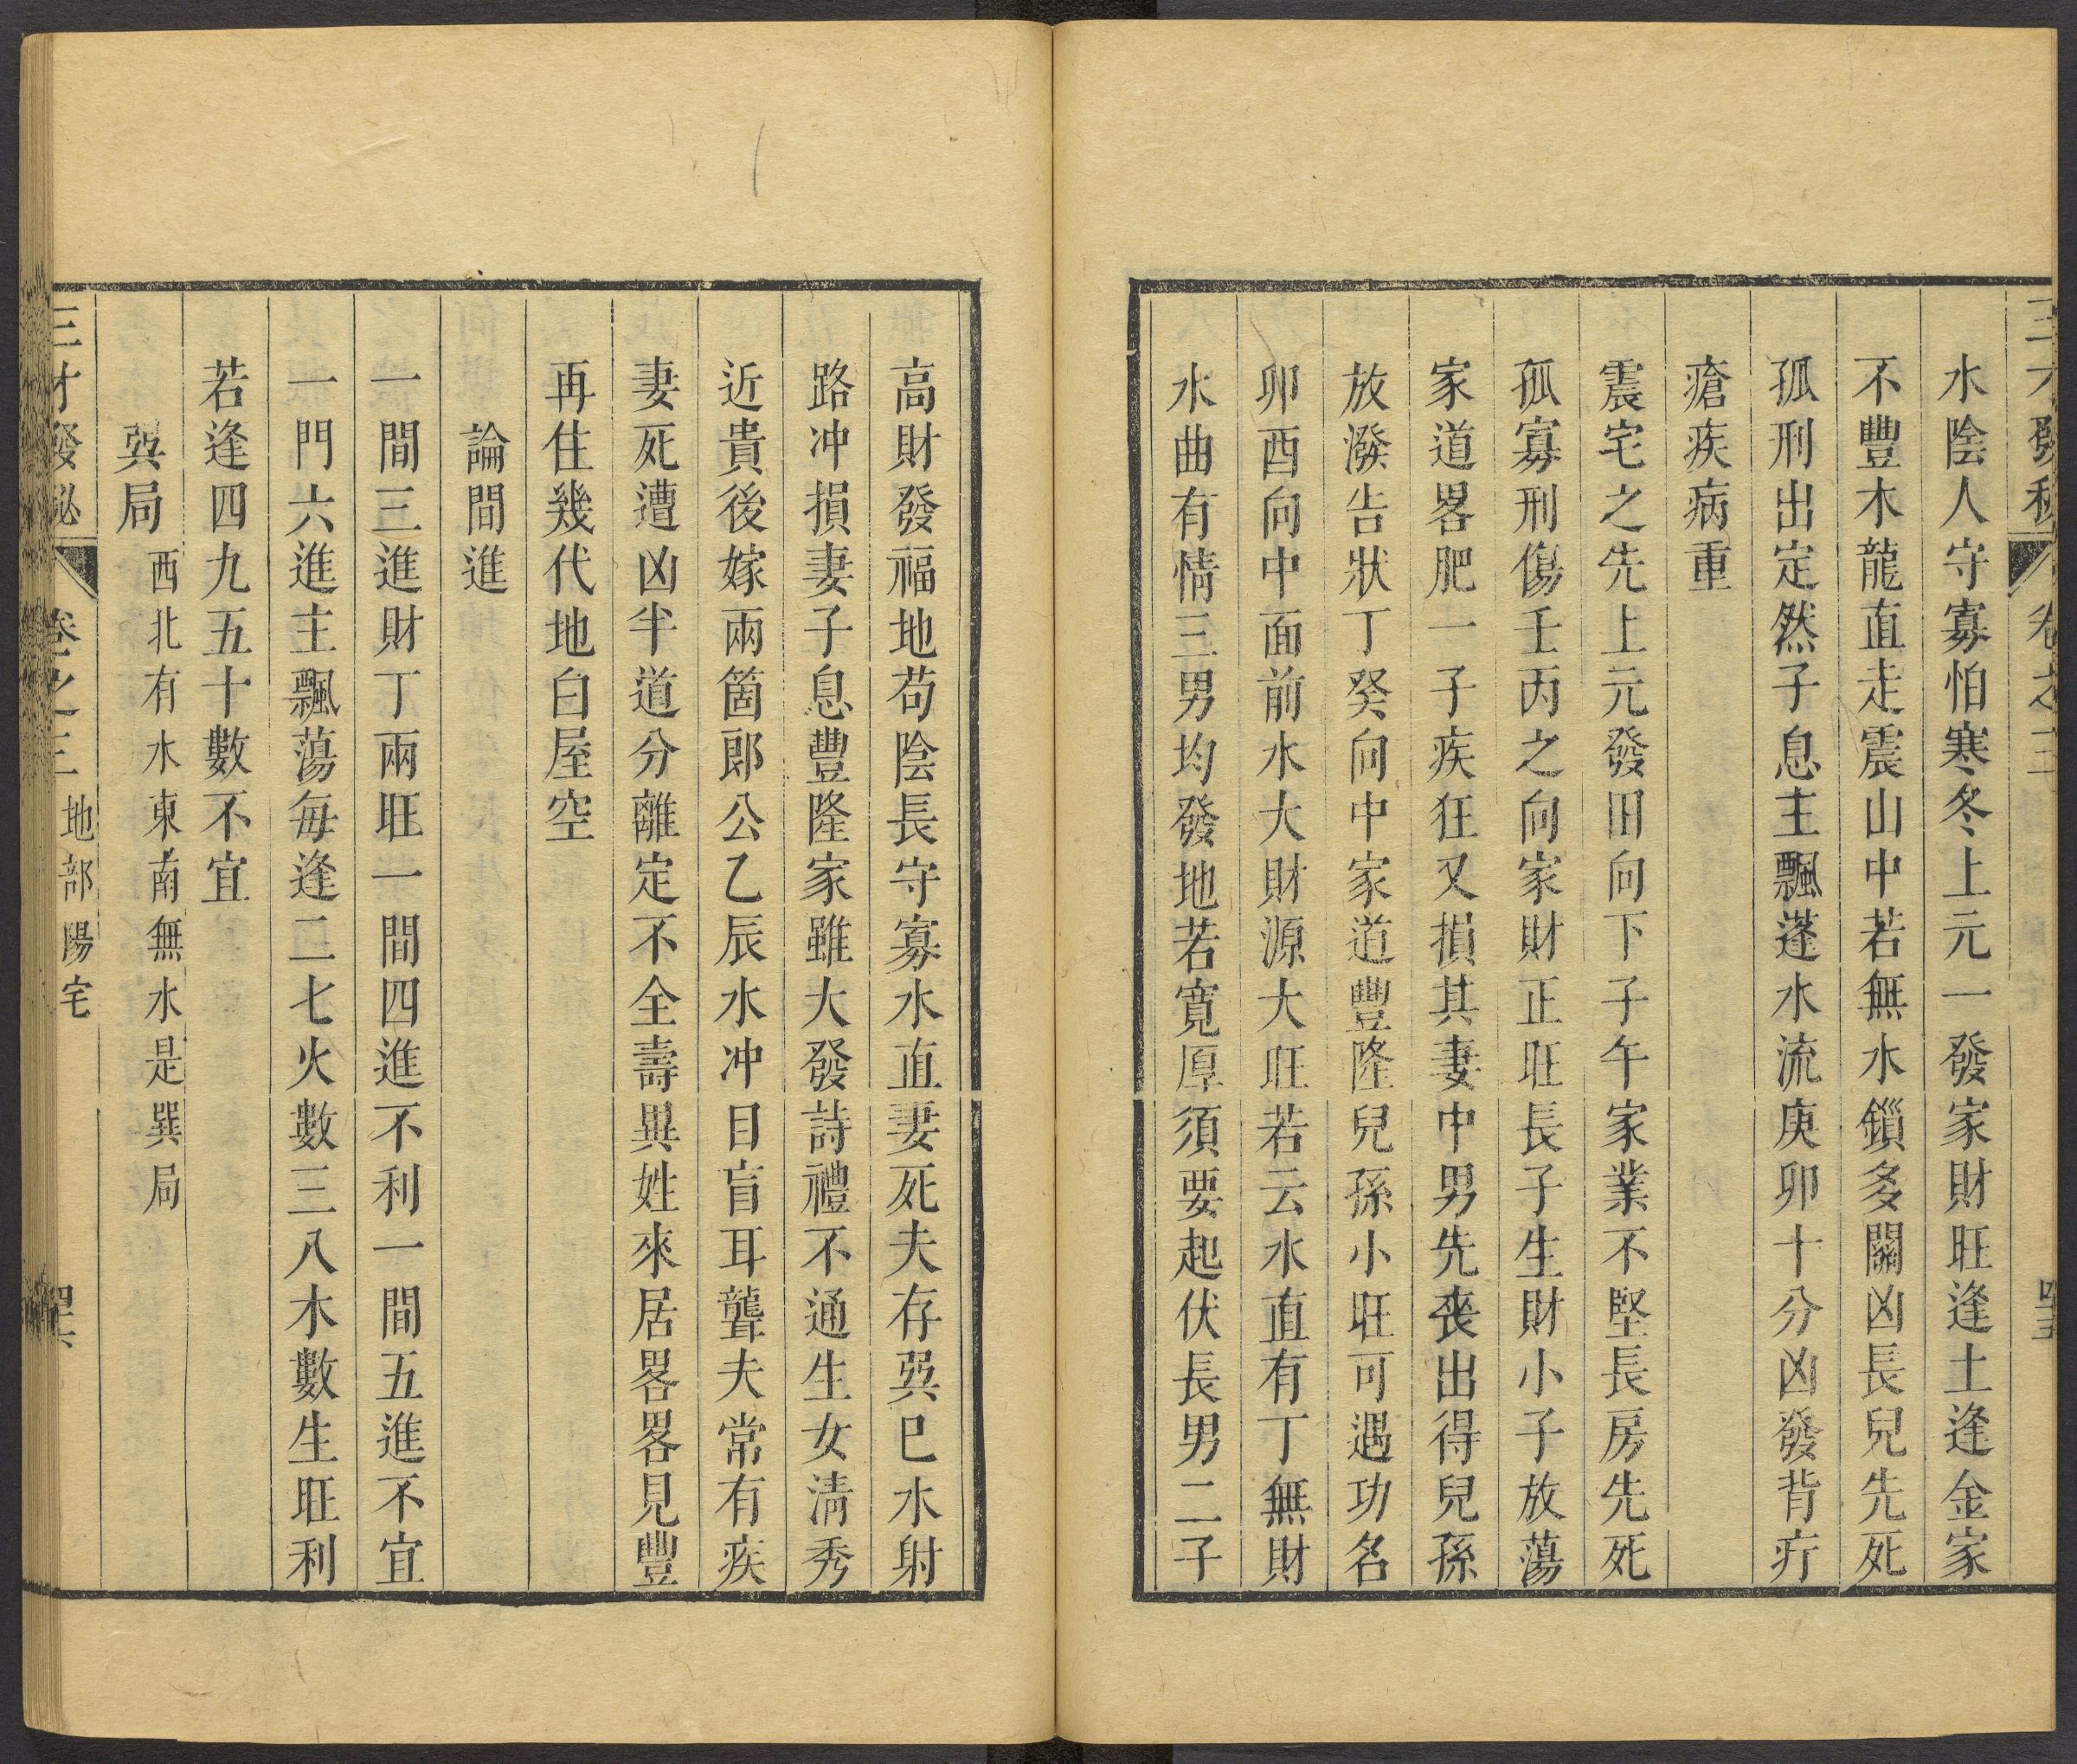 三才發秘 卷之三 四五
水陰人守寡怕寒冬上元一發家財旺逢土逢金家
不豐木龍直走震山中若無水鎻多關凶長兒先死
孤刑出定然子息主飄蓬水流庚卯十分凶發背疔
瘡疾病重
震宅之先上元發旧向下子午家業不堅長房先死
孤寡刑傷壬丙之向家財正旺長子生財小子放蕩
家道畧肥一子疾狂又損其妻中男先喪出得兒孫
放潑告狀丁癸向中家道豐隆兒孫小旺可遇功名
卯酉向中面前水大財源大旺若云水直有丁無財
水曲有情三男均發地若寬厚須要起伏長男二子
高財發福地茍陰長守寡水直妻死夫存巽巳水射
路冲損妻子息豐隆家雖大發詩禮不通生女淸秀
近貴後嫁兩箇郎公乙辰水冲目盲耳聾夫常有疾
妻死遭凶半道分離定不全壽異姓來居畧畧見豐
再住幾代地白屋空
論間進
一間三進財丁兩旺一間四進不利一間五進不宜
一門六進主飄蕩每逢二七火數三八木數生旺利
若逢四九五十數不宜
巽局 西北有水東南無水是巽局
三才發秘 卷之三 地部 陽宅 四六